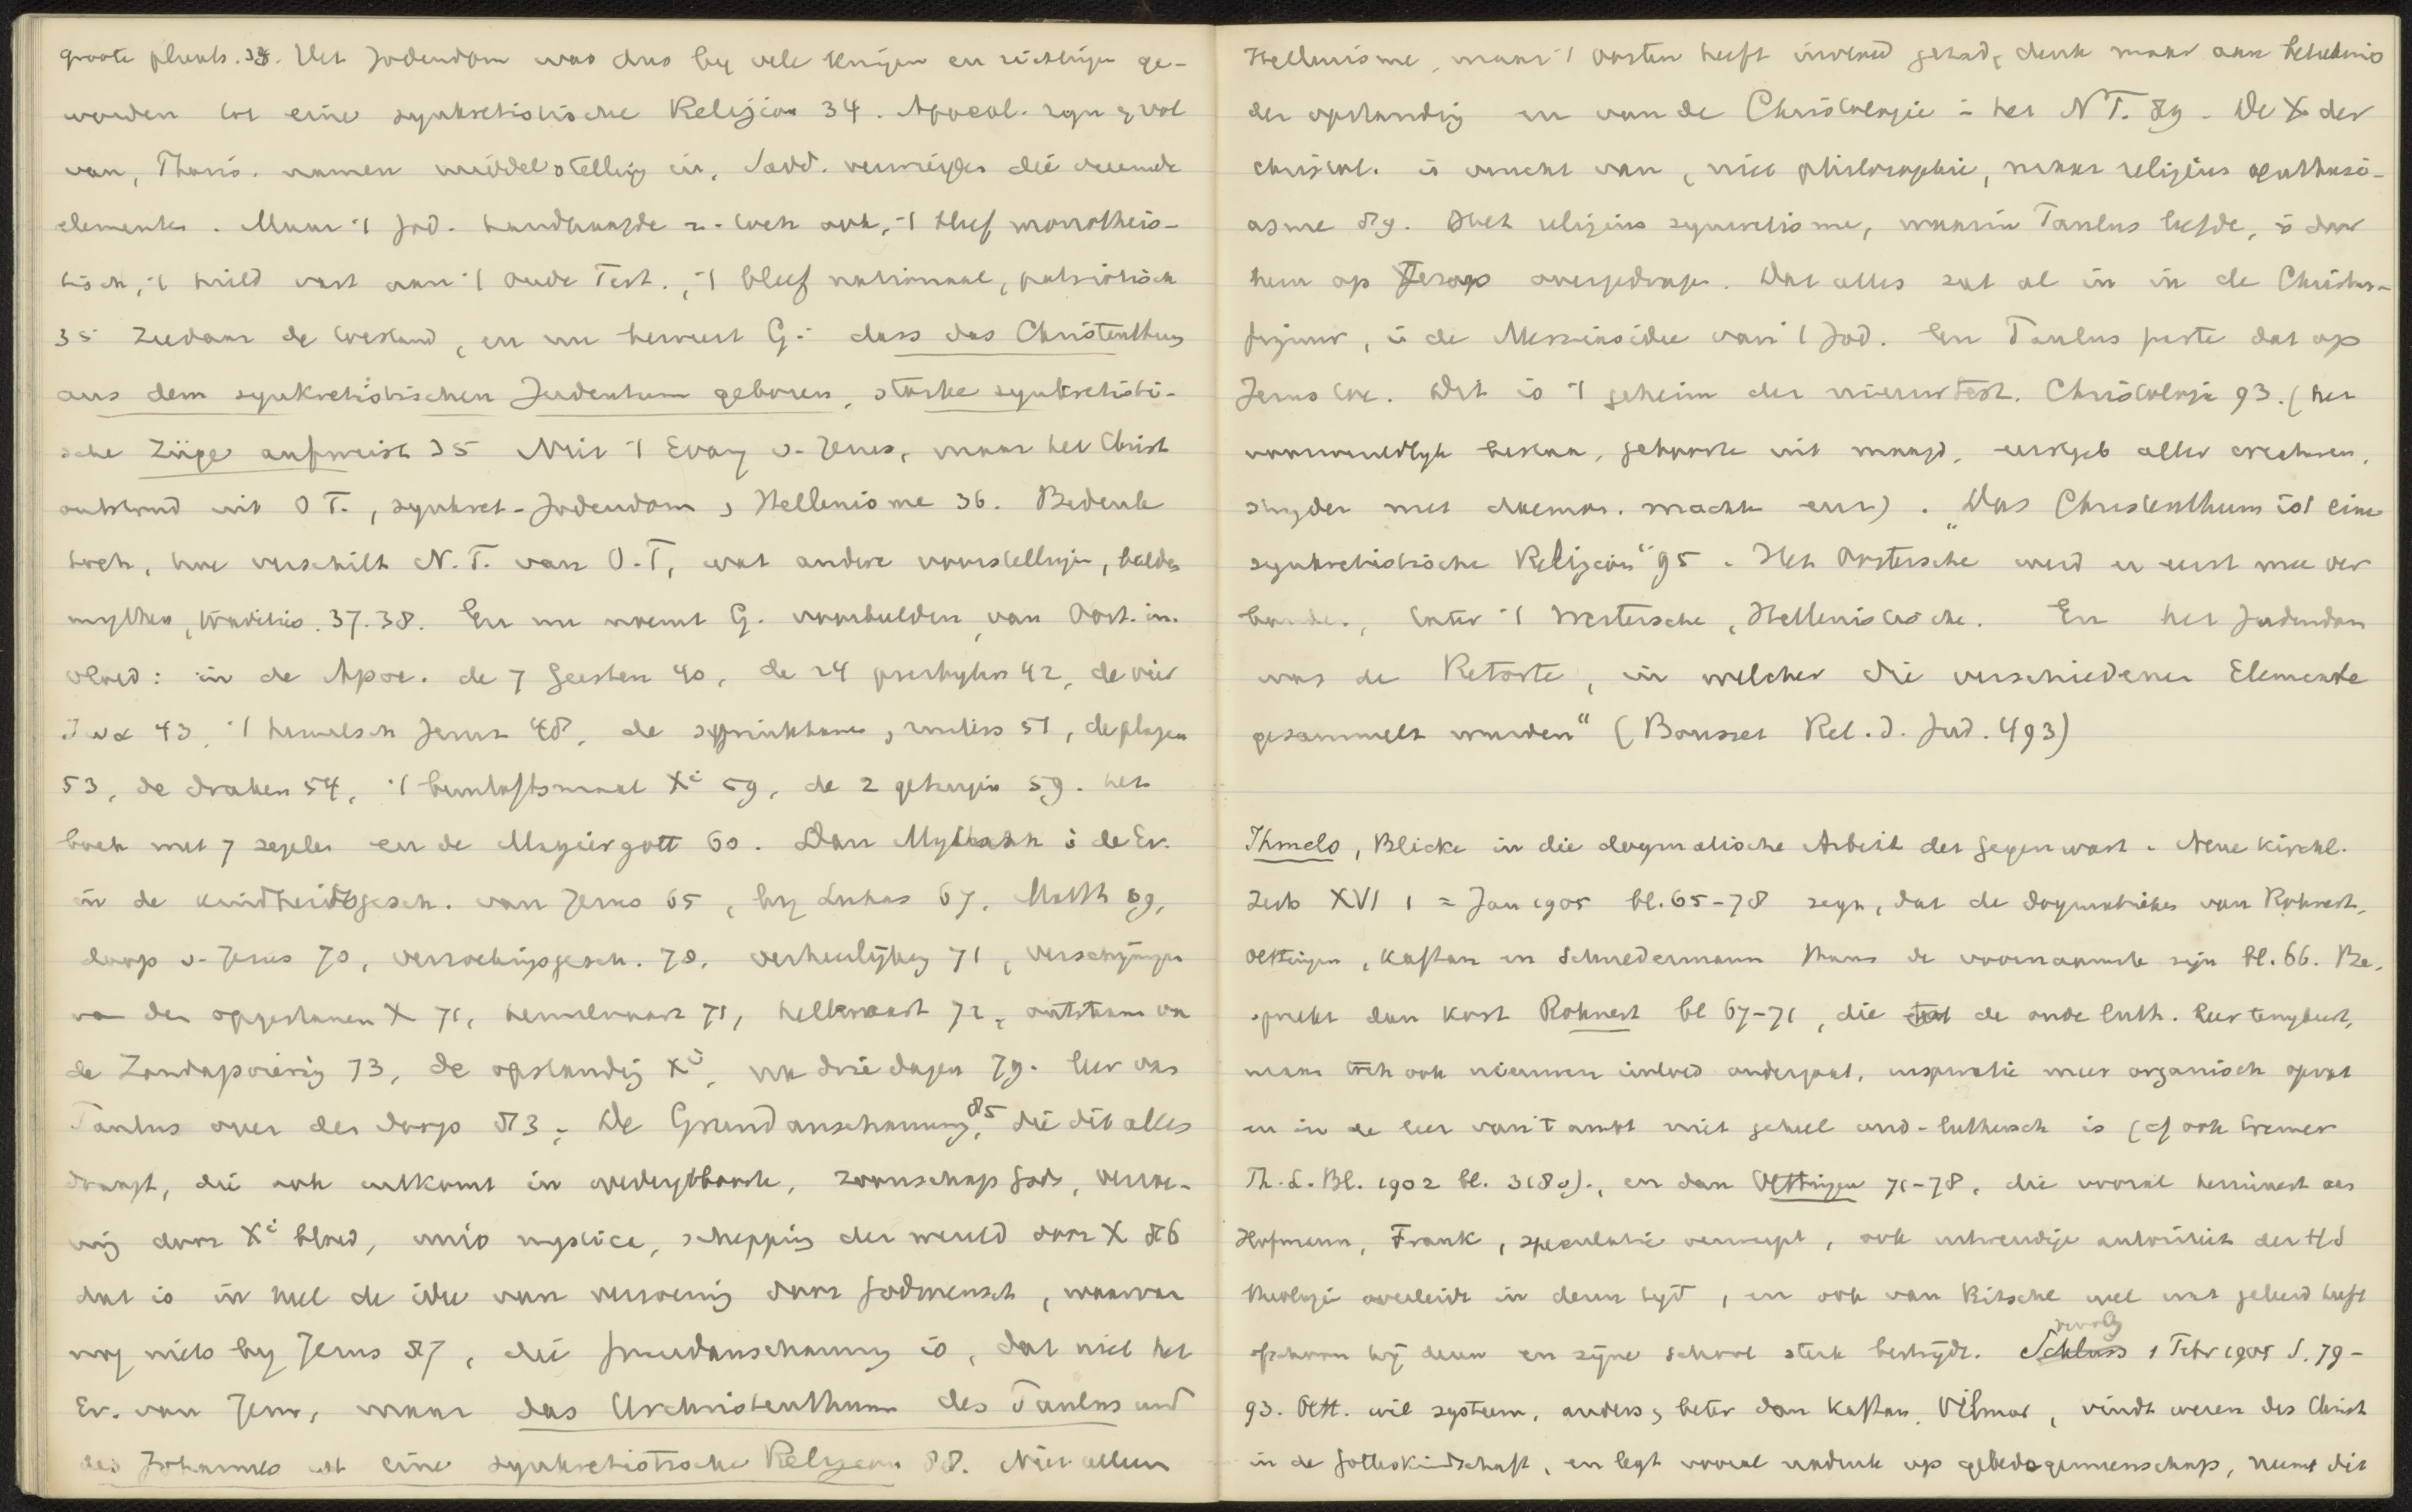 groote plaats. 33. Het Jodendom was dus by vele kringen en richtingen ge-
worden tot eine synkretistische Religion 34. Apocal. zyn er vol
van, Pharis. namen middelstelling in, Sadd. vermijden die vreemde
elementen. Maar 't Jod. handhaafde z. toch ook, 't bleef monotheis-
tisch, 't hield vast aan 't Oude Test., 't bleef nationaal, patriotisch
35 Ziedaar de toestand, en nu beweert G: dass das Christenthum
aus dem synkretistischen Judentum geboren, starke synkretisti-
sche Züge aufweist 35 Niet 't Evang v. Jezus, maar het Christ
ontstond uit O T., synkret-Jodendom, Hellenisme 36. Bedenk
toch, hoe verschilt N.T. van O.T, wat andere voorstellingen, beelden
mythen, tradities. 37.38. En nu noemt G. voorbeelden van Oost. in-
vloed: in de Apoc. de 7 geesten 40, de 24 presbyters 42, de vier
ζωα 43, 't hemelsch Jeruz 48, de sprinkhanen, ruiters 51, de plagen
53, de draken 54, 't bruiloftsmaal Xi 59, de 2 getuigen 59. het
boek met 7 zegelen en de Magiergott 60. Dan Mythisch i de Ev.
in de kindheidsgesch. van Jezus 65, by Lukas 67, Matth 69,
doop v. Jezus 70, verzoekingsgesch. 70, verheerlijking 71, verschijningen
van den opgestanen X 71, hemelvaart 71, hellevaart 72, ontstaan van
de Zondagsviering 73, de opstanding Xi, na drie dagen 79. leer van
Paulus over den doop 83. De Grundanschauung, 85 die dit alles
draagt, die ook uitkomt in wedergeboorte, zoonschap Gods, verzoe-
ning door Xi bloed, unio mystica, schepping der wereld door X 86
dat is in heel de idee van verzoening door Godmensch, waarvan
nog niets by Jezus 87, die Grundanschauung is, dat niet het
Ev. van Jezus, maar das Urchristenthum des Paulus und
des Johannes ist eine synkretistische Religion 88. Niet alleen
Hellenisme, maar 't Oosten heeft invloed gehad, denk maar aan betekenis
der opstanding en van de Christologie in het N T. 89. De X der
christol. is vrucht van, niet philosophie, maar religieus enthusi-
asme 89. Het religieus syncretisme, waarin Paulus leefde, is door
hem op Jezus overgedragen. Dat alles zat al in in de Christus-
figuur, in de Messiasidee van 't Jod. En Paulus paste dat op
Jezus toe. Dit is 't geheim der nieuwtest. Christologie 93. (het
voorwereldlyk bestaan, geboorte uit maagd, eerstgeb aller creaturen,
stryder met daemon. machten enz). „Das Christenthum ist eine
synkretistische Religion“ 95. Het Oostersche werd er eerst mee ver
bonden, later 't Westersche, Hellenistische. En het Jodendom
was de Retorte, in welcher die verschiedenen Elemente
gesammelt wurden“ (Bousset Rel. d. Jud. 493)
Ihmels, Blicke in die dogmatische Arbeit der Gegenwart. Neue Kirchl.
Zeits XVI 1 = Jan 1905 bl. 65-78 zegt, dat de dogmatieken van Rohnert,
Oettingen, Kaftan en Schnedermann thans de voornaamste zijn bl. 66. Be-
spreekt dan kort Rohnert bl 67-71, die de oude luth. leer teruggeeft,
maar toch ook nieuwen invloed ondergaat, inspiratie meer organisch opvat
en in de leer van 't ambt niet geheel oud-luthersch is (cf ook Cremer
Th. L. Bl. 1902 bl. 318v)., en dan Oettingen 71-78, die vooral herinnert aan
Hofmann, Frank, speculatie verwerpt, ook uitwendige autoriteit der HS
theologie in dienst, en ook van Ritschl wel wat geleerd heeft
ofschoon hij dezen en zijne school sterk bestrijdt. Schluss vervolg 1 Febr 1905 S. 79-
93. Oett. wil systeem, anders, beter dan Kaftan, Vilmar, vindt wezen des Christ
in de Gotteskindschaft, en legt vooral nadruk op gebedsgemeenschap, neemt dit